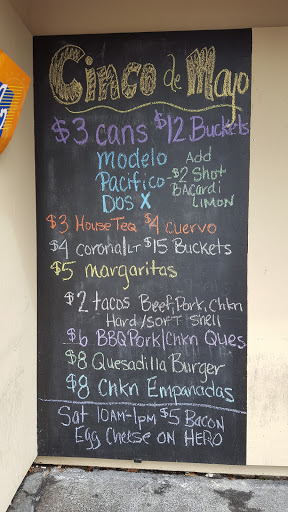 Cinco de Mayo
$3 cans $12 Buckets
Modelo
Pacifico
DOS X
Add
$2 Shot
BACardi
LIMON
$3 House Teq $4 cuervo
$4 corona/LT $15 Buckets
$5 margaritas
$2 tacos Beef, Pork, Chkn
Hard/soft shell
$6 BBQ Pork/Chkn Ques
$8 Quesadilla Burger
$8 Chkn Empanadas
Sat 10AM-1PM $5 Bacon
Egg Cheese on HERO